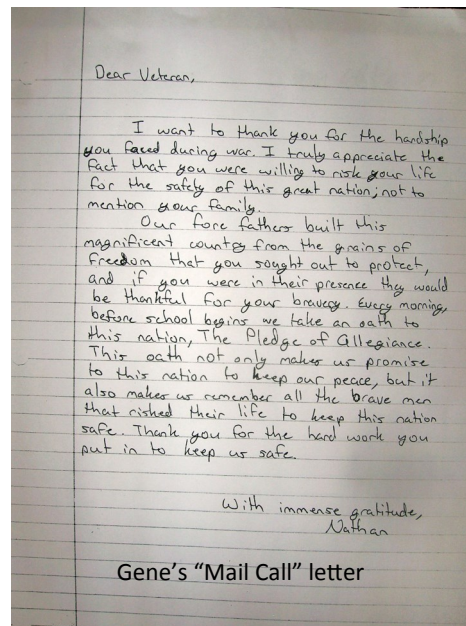 Dear Veteran,
I want to thank you for the hardship
you faced during war. I truly appreciate the
fact that you were willing to risk your life
for the safety of this great nation; not to
mention your family.
Our fore fathers built this
magnificent country from the grains of
freedom that you sought out to protect,
and if you were in their presence they would
be thankful for your bravery. Every morning,
before school begins we take an oath to
this nation, The Pledge of Allegiance.
This oath not only makes us promise
to this nation to keep our peace, but it
also makes us remember all the brave men
that risked their life to keep this nation
safe. Thank you for the hard work you
put in to keep us safe.
With immense gratitude,
Nathan
Gene's "Mail Call" letter